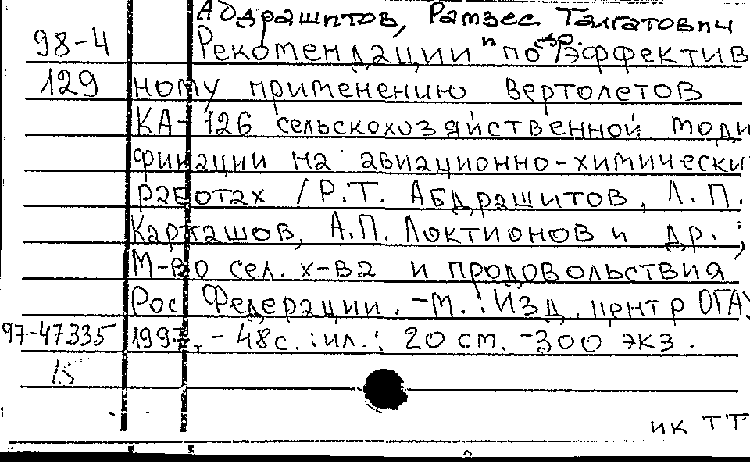 Абдрашитов, Рамзес Талгатович
98-4 Рекомендации по эффектив
129 ному применению вертолетов
КА-126 сельскохозяйственной моди
фикации на авиационно-химически
работах / Р.Т. Абдрашитов, Л.П.
Карташов, А.П. Локтионов и др. ;
М-во сел. х-ва и продовольствия
Рос. Федерации. - М. : Изд. центр ОГАУ
97-47335 1997. - 48с. : ил. ; 20 см. - 300 экз.
15
ик ТТ